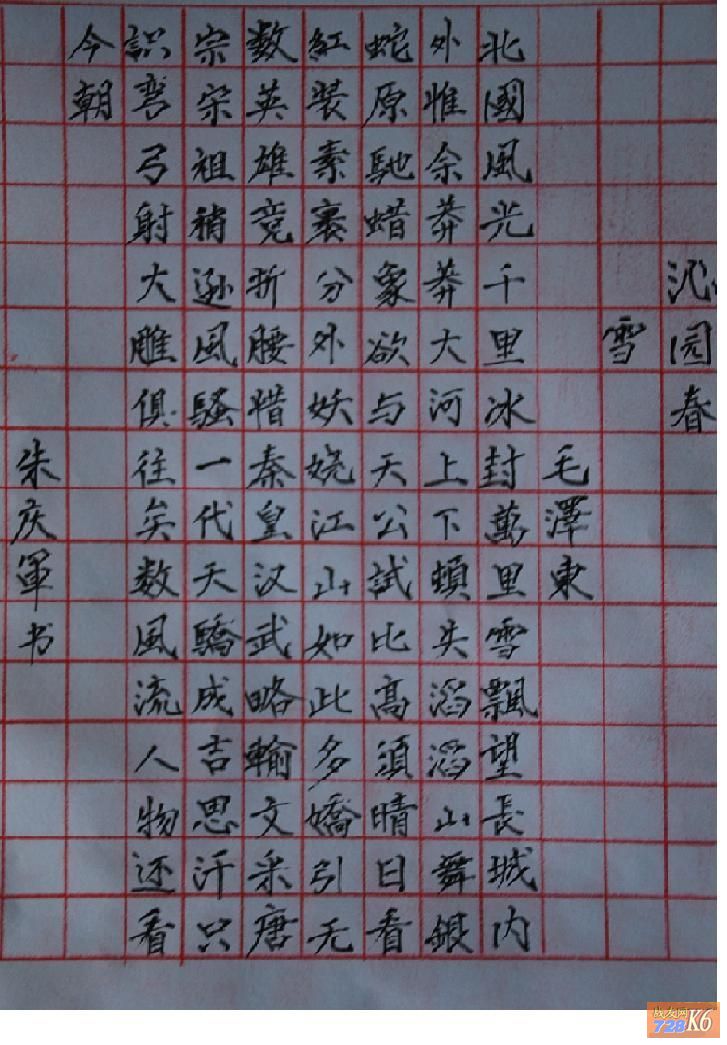 沁园春
雪
毛澤東
北國風光千里冰封萬里雪飄望長城内
外惟余莽莽大河上下頓失滔滔山舞銀
蛇原馳蜡象欲与天公試比高須晴日看
紅装素裹分外妖娆江山如此多嬌引无
数英雄竞折腰惜秦皇汉武略輸文采唐
宗宋祖稍逊風騷一代天驕成吉思汗只
識弯弓射大雕俱往矣数風流人物还看
今朝
朱庆軍书
战友网
728K6